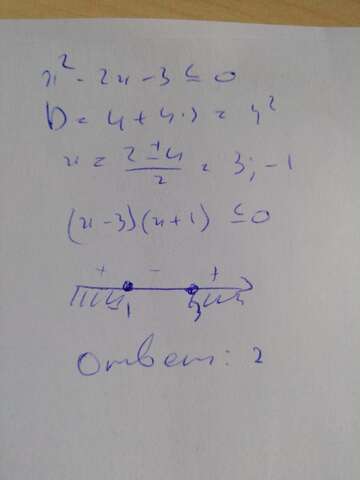 x² - 2x - 3 ≤ 0
D = 4 + 4·3 = 4²
x = (2 ± 4)/2 = 3; -1
(x - 3)(x + 1) ≤ 0
+ - +
-1 3
Ответ: 2